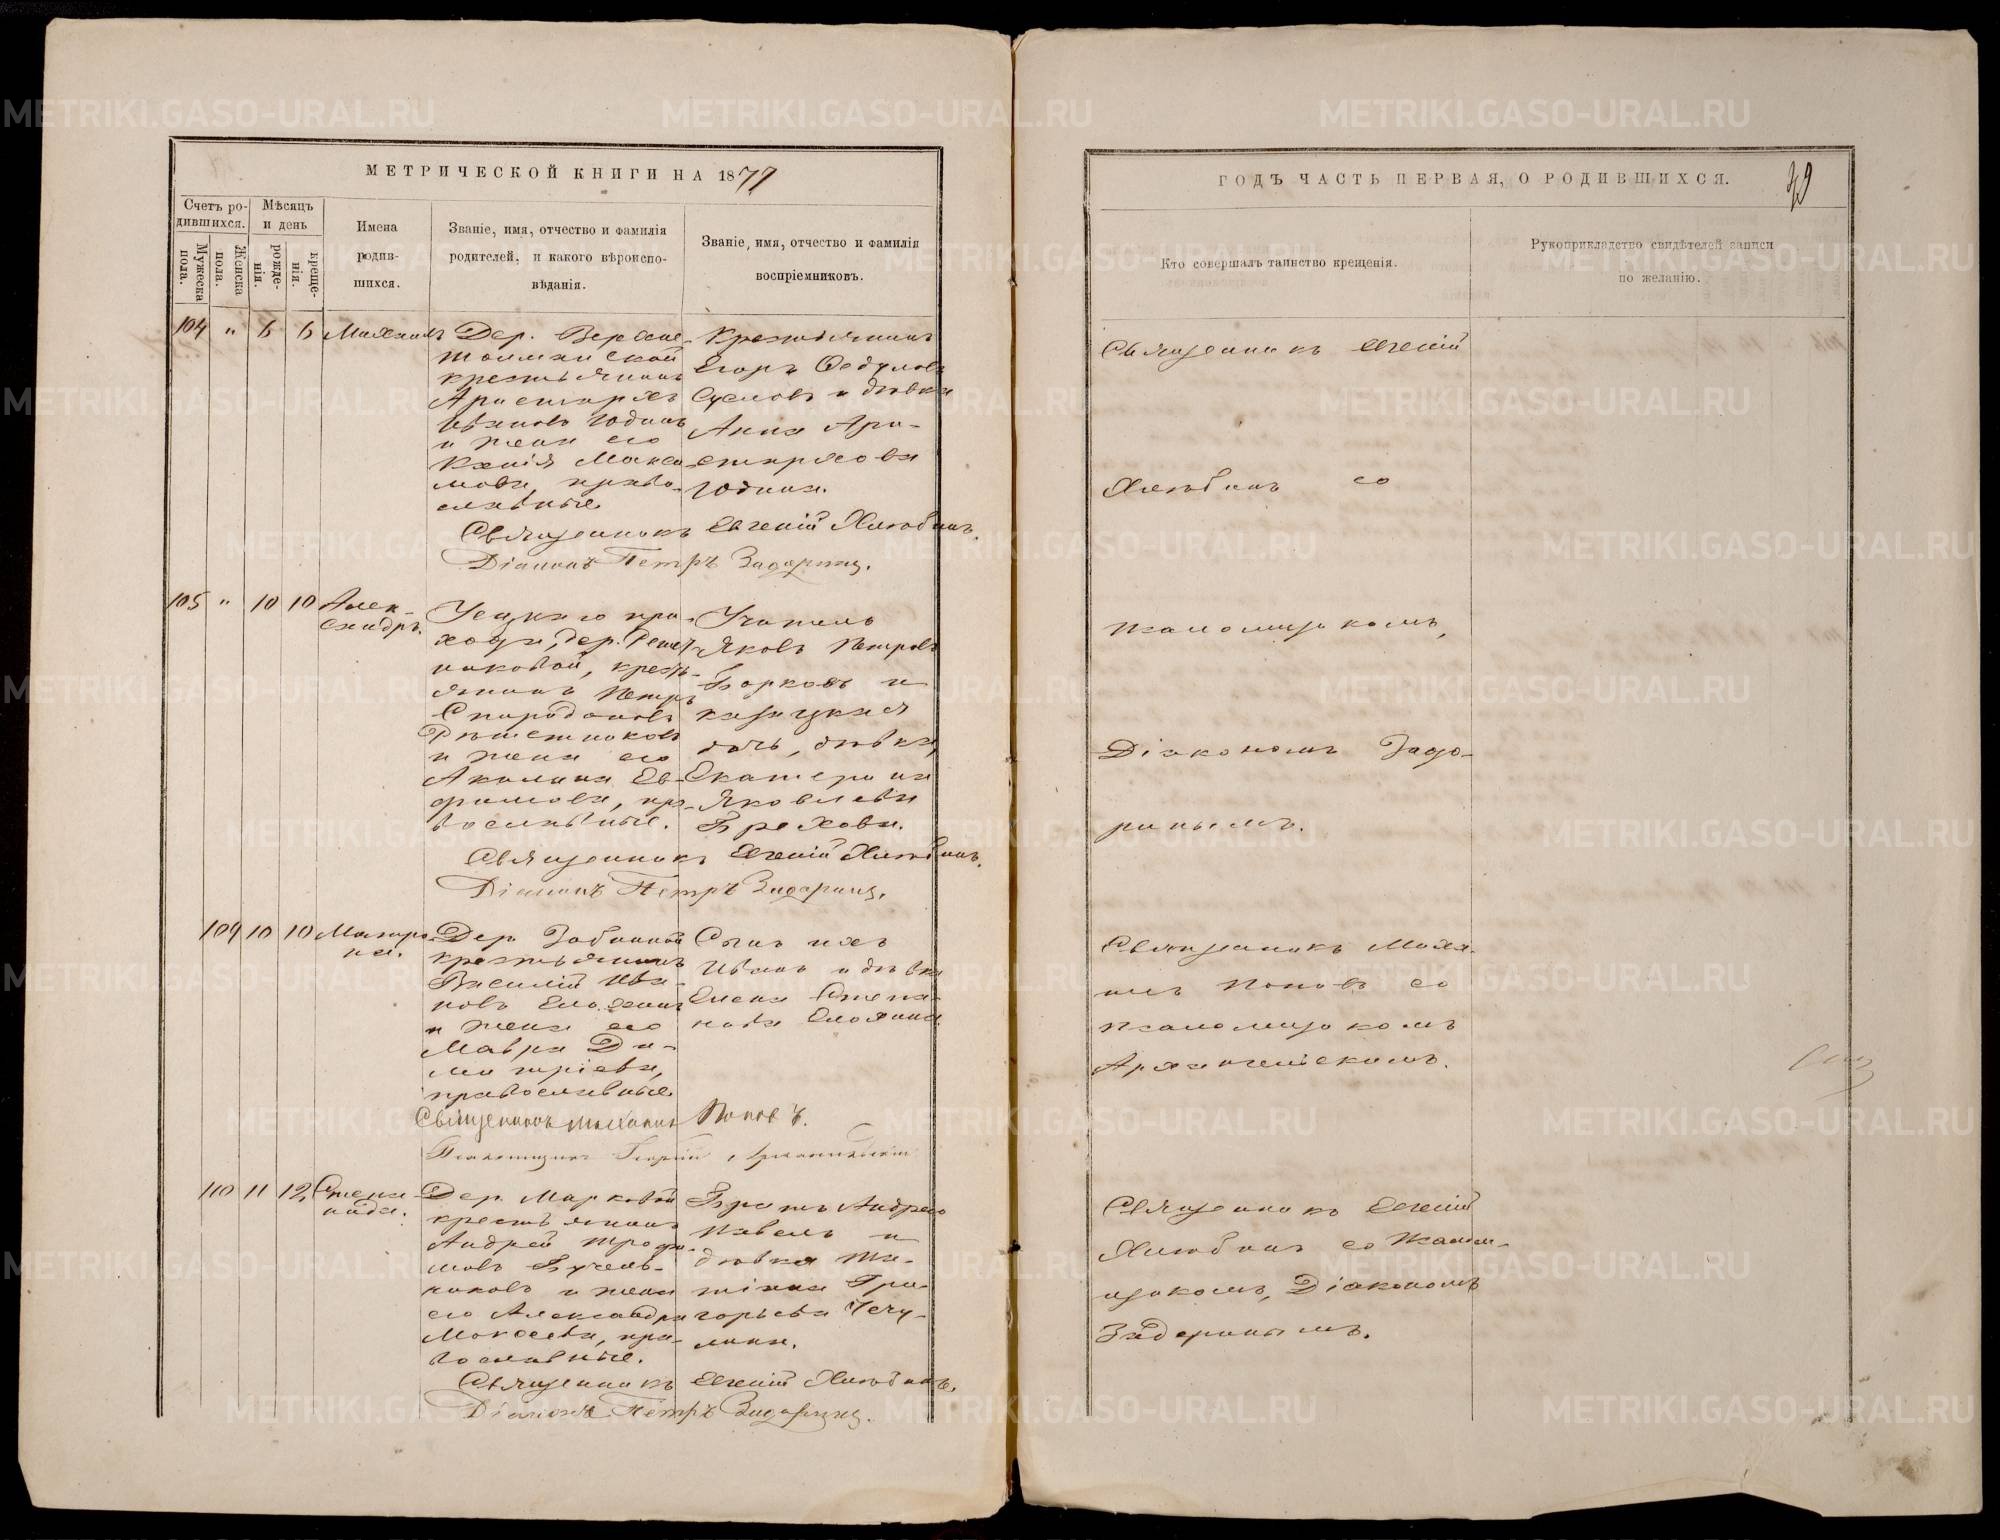 МЕТРИЧЕСКОЙ КНИГИ НА 1879
Счетъ ро-
дившихся.
Мужеска
пола.
Женска
пола.
Мѣсяцъ
и день
рожде-
нія.
креще-
нія.
Имена
родив-
шихся.
Званіе, имя, отчество и фамилія
родителей, и какого вѣроиспо-
вѣданія.
Званіе, имя, отчество и фамилія
воспріемниковъ.
104 " 6 6 Михаилъ
Дер. Верхне
крестьянинъ
Аристархъ
Ивановъ Юдинъ
и жена его
Ксенія Макси
мова, право-
славные.
Крестьянинъ
Егоръ Ѳедуловъ
Сусловъ и дѣвка
Анна Ари-
стархова
Юдина.
Священникъ Евгеній Хлюбинъ.
Діаконъ Петръ Задоринъ.
105 " 10 10 Алек-
сандръ.
прихо-
хода, дер. Решет-
никовой, крест-
янинъ Петръ
Спиридоновъ
Рѣшетниковъ
и жена его
Акилина Ев-
фимова, пра-
вославные.
Учитель
Яковъ Петровъ
и
дочь, дѣвка,
Екатерина
Яковлева
Брехова.
Священникъ Евгеній Хлюбинъ.
Діаконъ Петръ Задоринъ.
109 10 10 Матро
на.
Дер. Забочной
крестьянинъ
Василій Ива-
новъ Елохинъ
и жена его
Мавра Ди-
митріева,
православные.
Сынъ ихъ
Иванъ и дѣвка
Елена Степа-
нова Елохина.
Священникъ Михаилъ Поповъ.
Псаломщикъ Георгій Архангельскій
110 11 12 Степа-
нида.
Дер. Марковой
крестьянинъ
Андрей Трофи-
мовъ Бучель-
никовъ и жена
его Александра
Мокеева, пра-
вославные.
Братъ Андрея
Павелъ и
дѣвка Та-
тіана Гри-
горьева Чечу-
лина.
Священникъ Евгеній Хлюбинъ.
Діаконъ Петръ Задоринъ.
ГОДЪ ЧАСТЬ ПЕРВАЯ, О РОДИВШИХСЯ.
Кто совершалъ таинство крещенія.
Рукоприкладство свидѣтелей записи
по желанію.
Священникъ Евгеній
Хлюбинъ со
псаломщикомъ,
Діакономъ Задо-
ринымъ.
Священникъ Миха-
илъ Поповъ со
псаломщикомъ
Архангельскимъ.
Священникъ Евгеній
Хлюбинъ со псалом-
щикомъ, Діакономъ
Задоринымъ.
METRIKI.GASO-URAL.RU